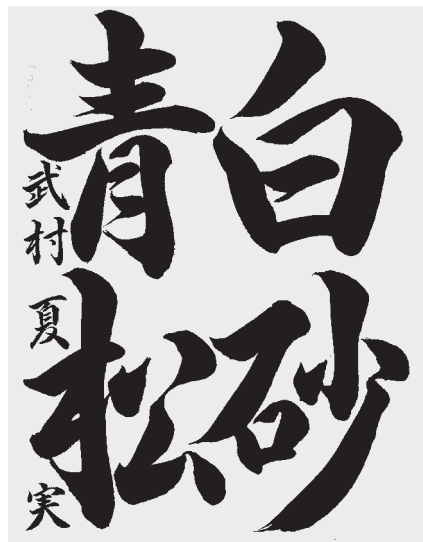 白砂
青松
武村夏実